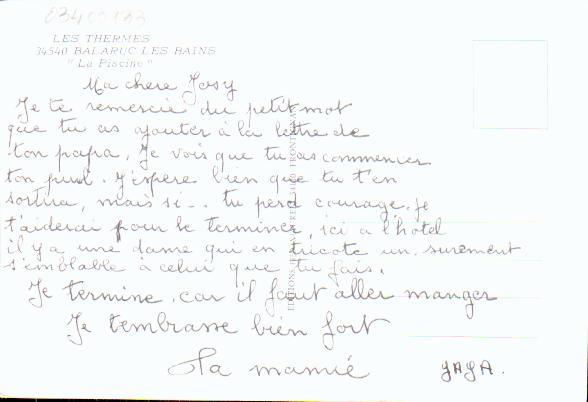 03400133
LES THERMES
34540 BALARUC LES BAINS
" La Piscine "
Ma chere Josy
Je te remercie du petit mot
que tu as ajouter à la lettre de
ton papa, Je vois que tu as commencer
ton pull. J'éspère bien que tu t'en
sortira, mais si.. tu perd courage. je
t'aiderai pour le terminer, ici a l'hôtel
il y a une dame qui en tricote un. surement
s'emblable à celui que tu fais.
Je termine. car il faut aller manger
Je t'embrasse bien fort
Ta mamie JAJA.